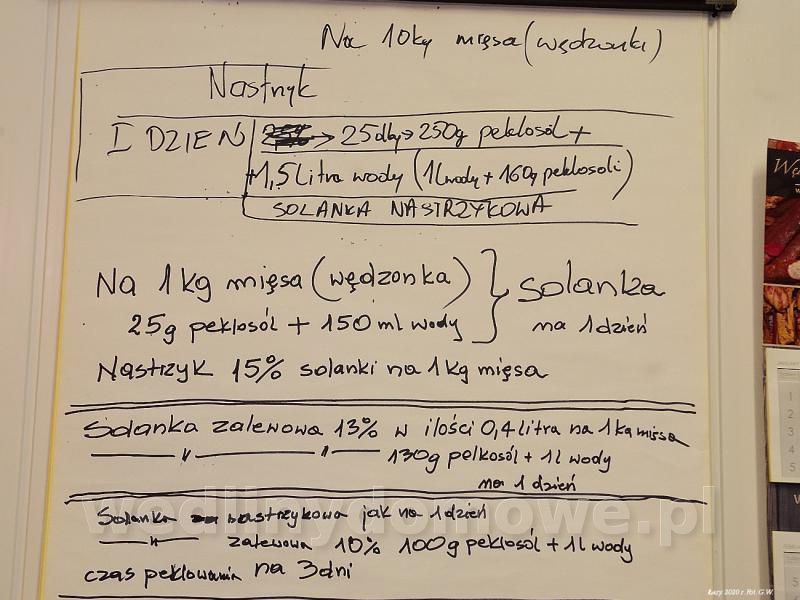 Na 10kg mięsa (wędzonki)
Nastryk
I DZIEŃ → 25dkg → 250g peklosól +
+1,5 Litra wody (1l wody + 160g peklosoli)
SOLANKA NASTRZYKOWA
Na 1kg mięsa (wędzonka) } solanka
25g peklosól + 150 ml wody na 1 dzień
Nastrzyk 15% solanki na 1kg mięsa
Solanka zalewowa 13% w ilości 0,4 litra na 1kg mięsa
—— 〃 —— 〃 —— 130g pelkosól + 1l wody
na 1 dzień
Solanka nastrzykowa jak na 1 dzień
—— 〃 —— zalewowa 10% 100g peklosól + 1l wody
czas peklowania na 3 dni
wedlinydomowe.pl
Łazy 2020 r. Fot. G.W.